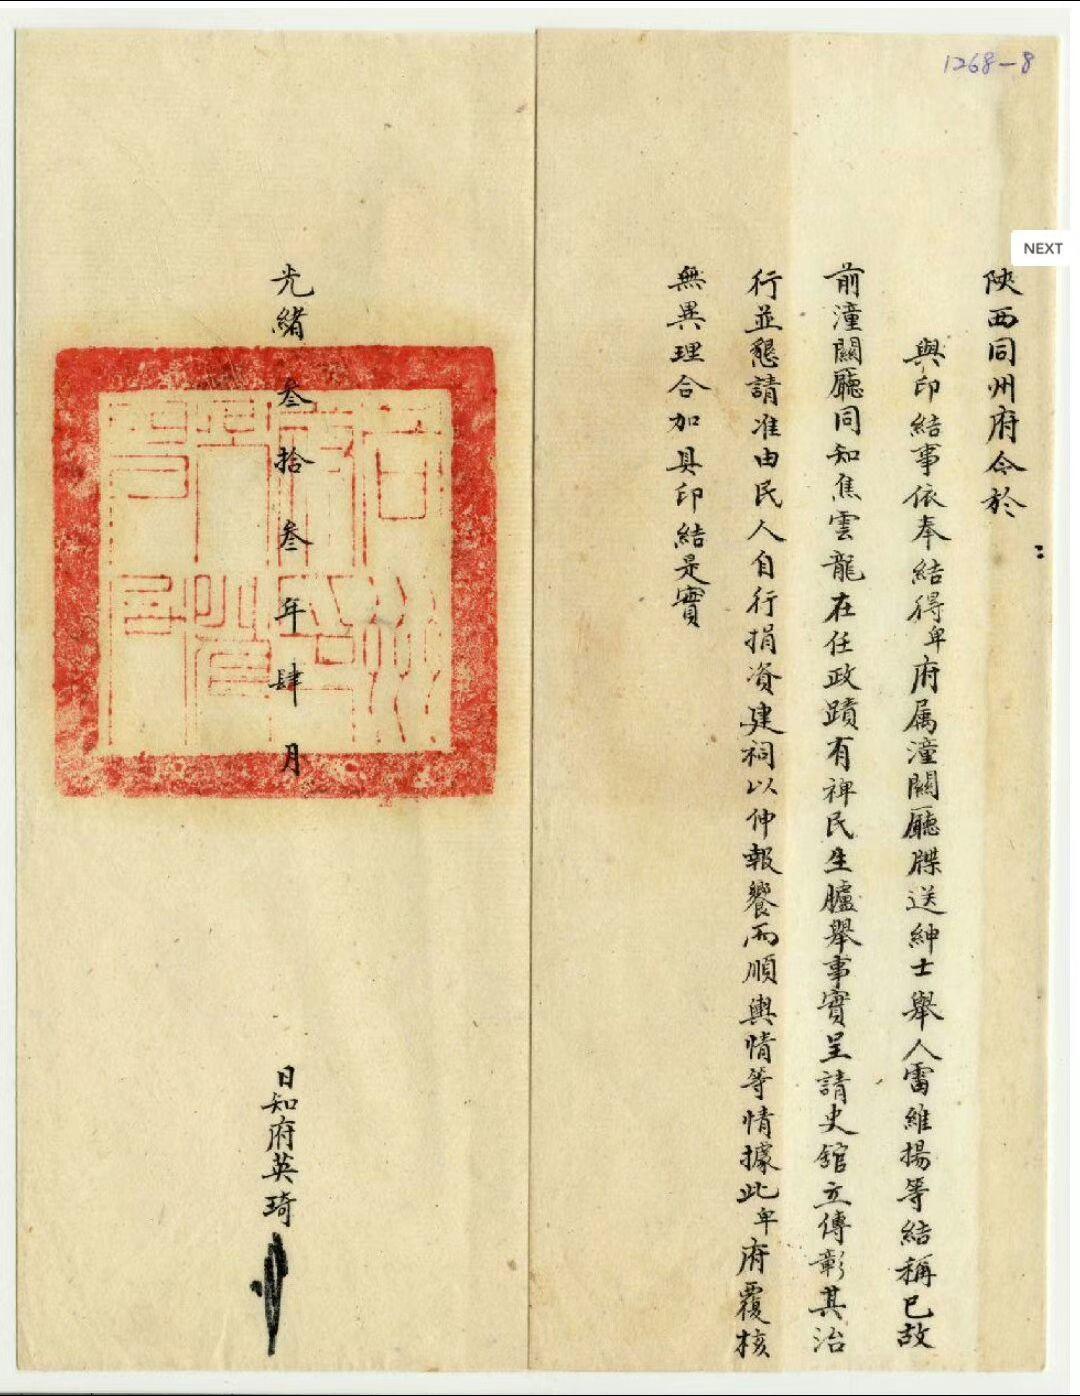 1268-8
NEXT
陝西同州府今於
與印結事依奉結得卑府属潼關廳牒送紳士舉人雷維揚等結稱已故
前潼關廳同知焦雲龍在任政蹟有裨民生臚舉事實呈請史館立傳彰其治
行並懇請准由民人自行捐資建祠以伸報饗而順輿情等情據此卑府覆核
無異理合加具印結是實
光緒叁拾叁年肆月 日知府英琦